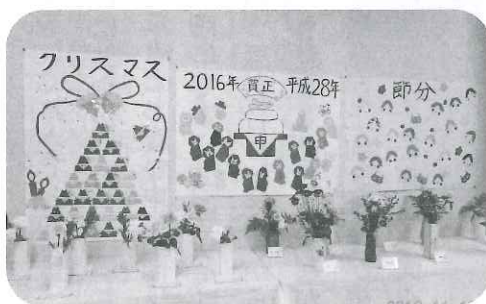 クリスマス
2016年 賀正 平成28年
申
節分